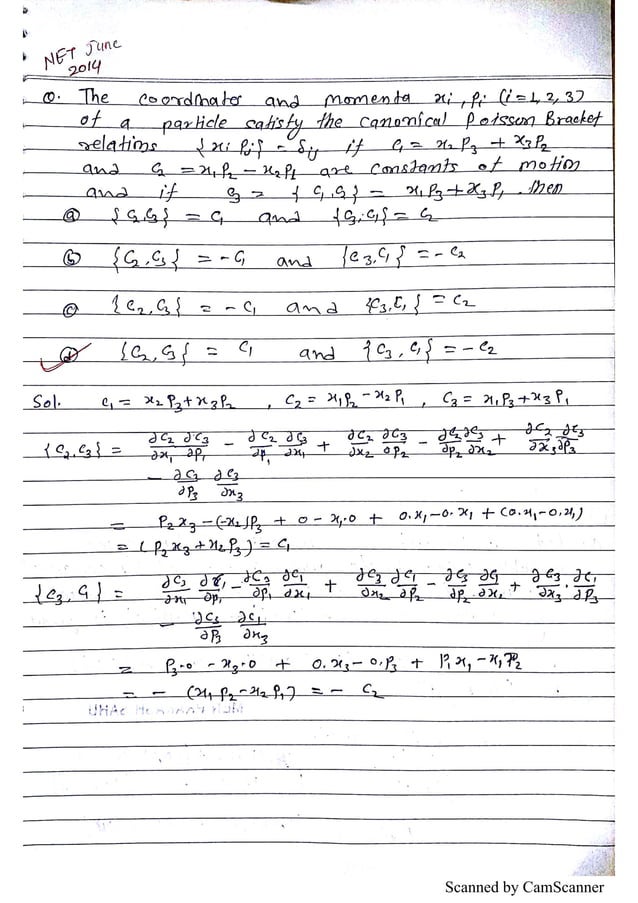 NET June
2014
Q. The coordinates and momenta xi, Pi (i=1,2,3)
of a particle satisfy the canonical Poisson Bracket
relations {xi Pj} = δij if C1 = x2P3 + x3P2
and C2 = x1P2 - x2P1 are constants of motion
and if C3 = {C1, C2} = x1P3 + x3P1 . then
(a) {C2, C3} = C1 and {C3, C1} = C2
(b) {C2, C3} = -C1 and {C3, C1} = -C2
(c) {C2, C3} = -C1 and {C3, C1} = C2
(d) {C2, C3} = C1 and {C3, C1} = -C2
Sol. C1 = x2P3 + x3P2 , C2 = x1P2 - x2P1 , C3 = x1P3 + x3P1
{C2, C3} = ∂C2/∂x1 ∂C3/∂P1 - ∂C2/∂P1 ∂C3/∂x1 + ∂C2/∂x2 ∂C3/∂P2 - ∂C2/∂P2 ∂C3/∂x2 + ∂C2/∂x3 ∂C3/∂P3
- ∂C2/∂P3 ∂C3/∂x3
= P2x3 - (-x2)P3 + 0 - x1.0 + 0.x1 - 0.x1 + (0.x1 - 0.x1)
= (P2x3 + x2P3) = C1
{C3, C1} = ∂C3/∂x1 ∂C1/∂P1 - ∂C3/∂P1 ∂C1/∂x1 + ∂C3/∂x2 ∂C1/∂P2 - ∂C3/∂P2 ∂C1/∂x2 + ∂C3/∂x3 . ∂C1/∂P3
- ∂C3/∂P3 ∂C1/∂x3
= P3.0 - x3.0 + 0.x3 - 0.P3 + P1x2 - x1P2
= - (x1P2 - x2P1) = - C2
Scanned by CamScanner